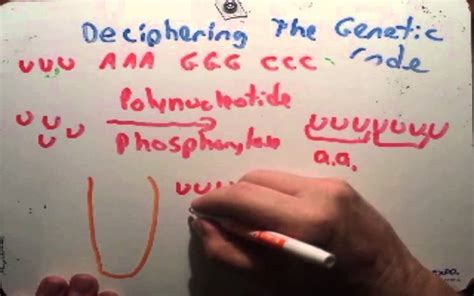 Deciphering The Genetic
Code
UUU AAA GGG CCC
Polynucleotide
U U U U
Phosphorylase
UUUUUUU
a.a.
UUU